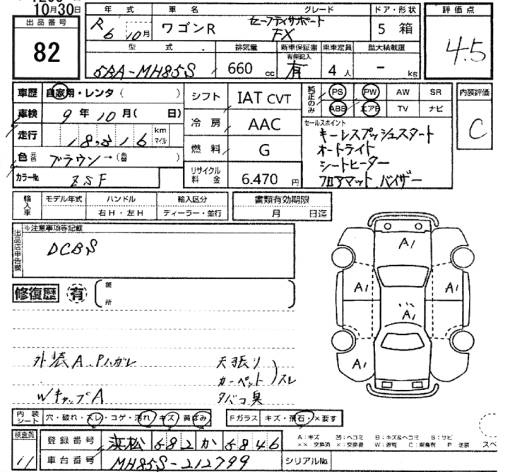 10月30日
出品番号
82
年式
車名
グレード
ドア・形状
評価点
R6 10月
ワゴンR
セーフティサポート
FX
5 箱
4.5
型式
排気量
新車保証書
有(記入有)
乗車定員
最大積載量
5AA-MH85S
660 cc
有
4人
- kg
車歴
自家用・レンタ
シフト
IAT CVT
純正のみ
PS PW AW SR
ABS エアB TV ナビ
内装評価
C
車検
9年10月( 日)
冷房
AAC
セールスポイント
キーレスプッシュスタート
オートライト
シートヒーター
フロアマット バイザー
走行
km
マイル
燃料
G
色
ブラウン→
カラーNo
ZSF
リサイクル料金
6.470円
輸入車
モデル年式
ハンドル
輸入区分
書類有効期限
右H・左H
ディーラー・並行
月 日迄
出品店申告欄
※注意事項等記載
DCBS
修復歴 有
箇所
A1
A1 A1 A1
A1
外装A Pハガレ
天張り
カーペット スレ
WキャップA
タバコ臭
内装シート
穴・破れ・スレ・コゲ・汚れ・キズ・黄ばみ
Fガラス
キズ・飛石・×要す
検査員
11
登録番号
浜松582か5846
車台番号
MH85S-212799
シリアルNo.
A:キズ